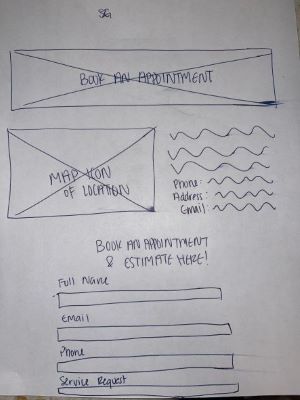 BOOK AN APPOINTMENT
MAP ICON
OF LOCATION
Phone:
Address:
Email:
BOOK AN APPOINTMENT
& ESTIMATE HERE!
Full Name
Email
Phone
Service Request